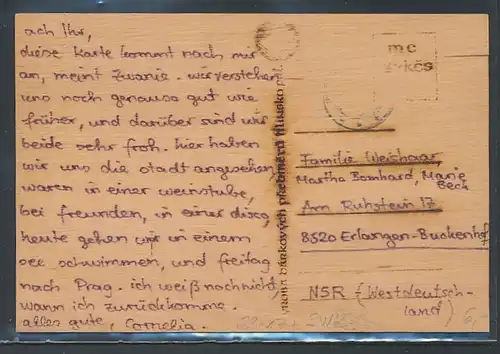 ach Ihr,
diese Karte kommt nach mir
an, meint Zwanie. wir verstehen
uns noch genauso gut wie
früher, und darüber sind wir
beide sehr froh. hier haben
wir uns die stadt angesehen,
waren in einer weinstube,
bei freunden, in einer disco,
heute gehen wir in einem
see schwimmen, und freitag
nach Prag. ich weiß noch nicht,
wann ich zurückkomme.
alles gute, Cornelia.
dárkových předmětů Hlinsko
mc
kčs
Familie Weishaar,
Martha Bomhard, Marie
Beck
Am Ruhstein 17
8520 Erlangen-Buckenhof
NSR (Westdeutsch-
land)